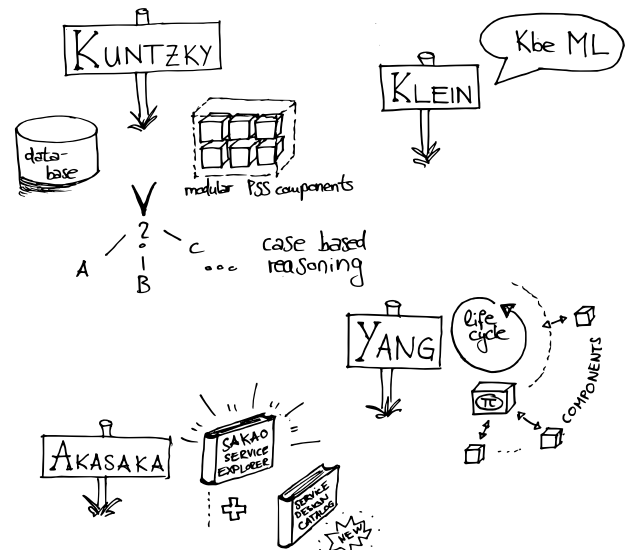 KUNTZKY
data-
base
modular PSS components
?
A
B
C
...
case based
reasoning
KLEIN
Kbe ML
YANG
life
cycle
π
COMPONENTS
AKASAKA
SAKAO
SERVICE
EXPLORER
+
SERVICE
DESIGN
CATALOG
NEW